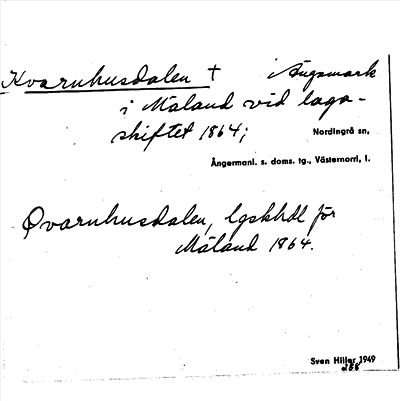 Kvarnhusdalen † Ängsmark
i Måland vid laga-
skiftet 1864;
Nordingrå sn,
Ångermanl. s. doms. tg., Västernorrl, l.
Qvarnhusdalen, lgskhdl för
Måland 1864.
Sven Hiller 1949